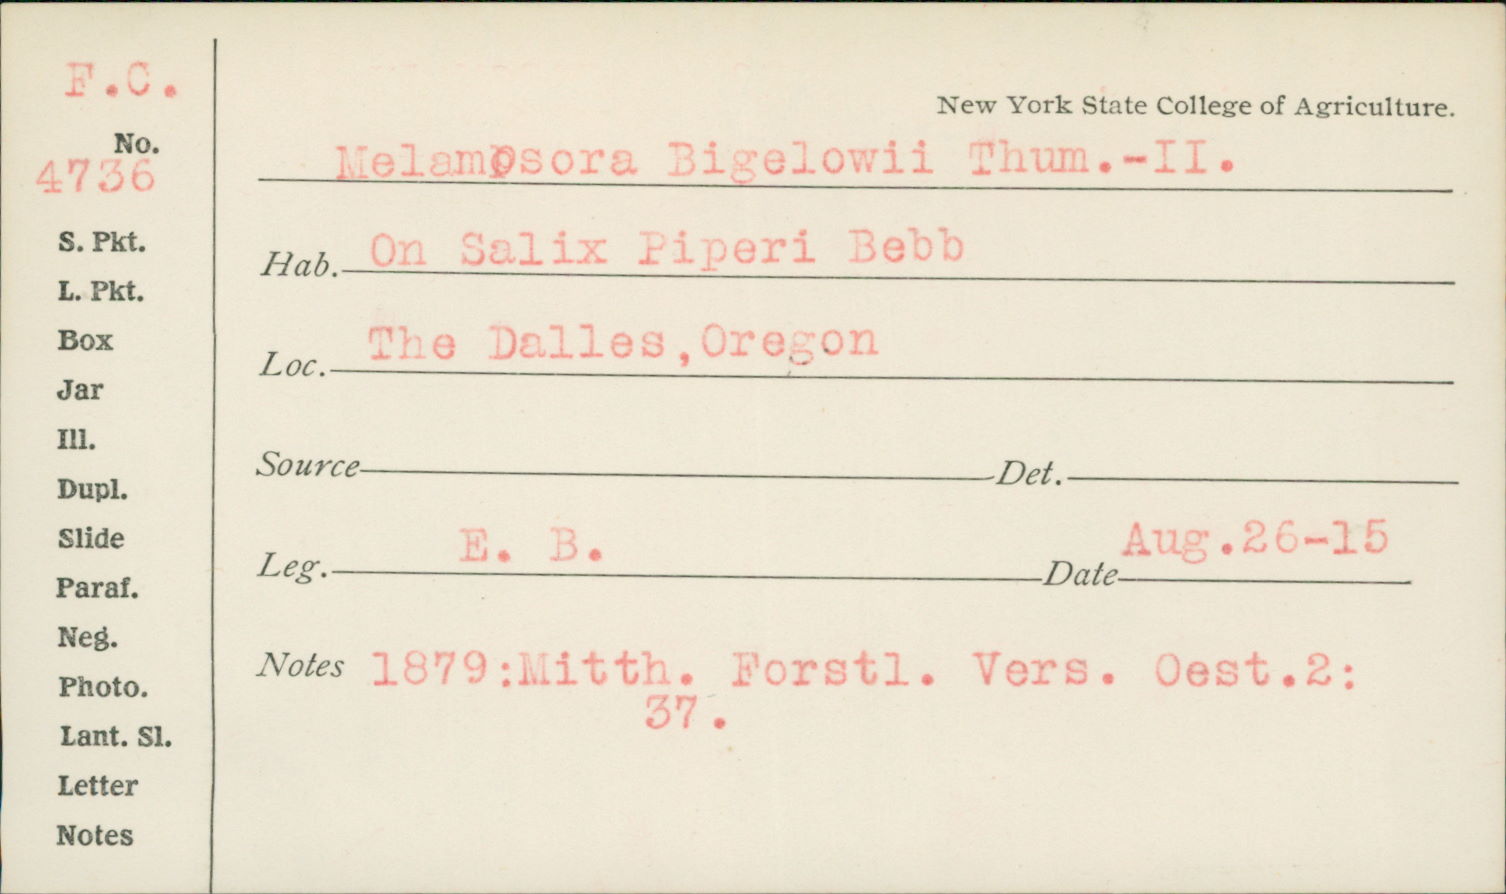 F.C.
No.
4736
S. Pkt.
L. Pkt.
Box
Jar
Ill.
Dupl.
Slide
Paraf.
Neg.
Photo.
Lant. Sl.
Letter
Notes
New York State College of Agriculture.
Melampsora Bigelowii Thum.-II.
Hab. On Salix Piperi Bebb
Loc. The Dalles,Oregon
Source Det.
Leg. E. B. Date Aug.26-15
Notes 1879:Mitth. Forstl. Vers. Oest.2:
37.